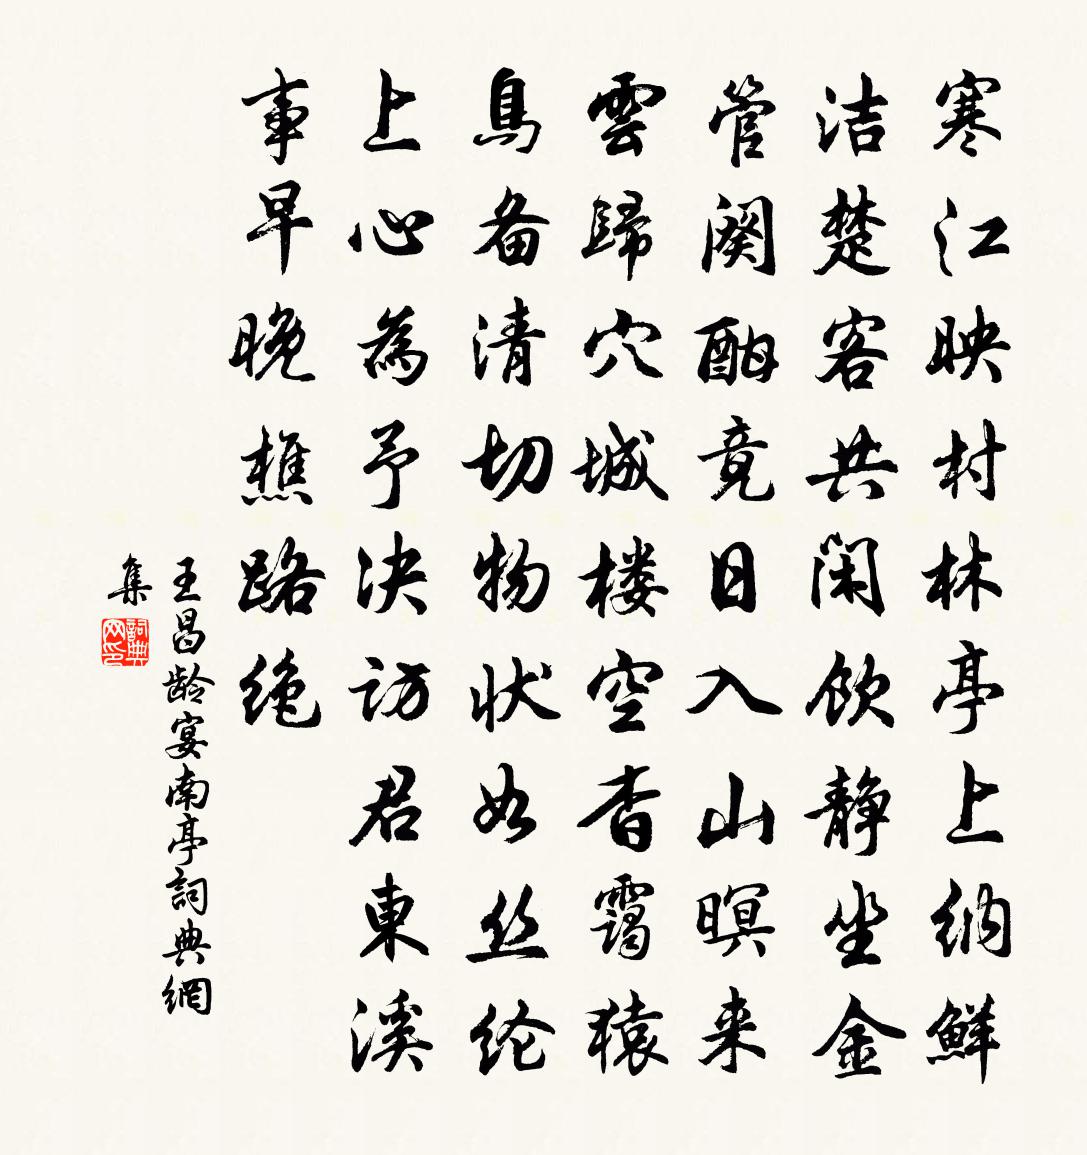 寒江映村林亭上纳鮮
洁楚客共闲饮静坐金
管阕酣竟日入山暝来
雲歸穴城楼空杳靄猿
鳥备清切物状如丝纶
上心為予决访君東溪
事早晚樵路绝
王昌龄宴南亭詞典網
集
詞典网印